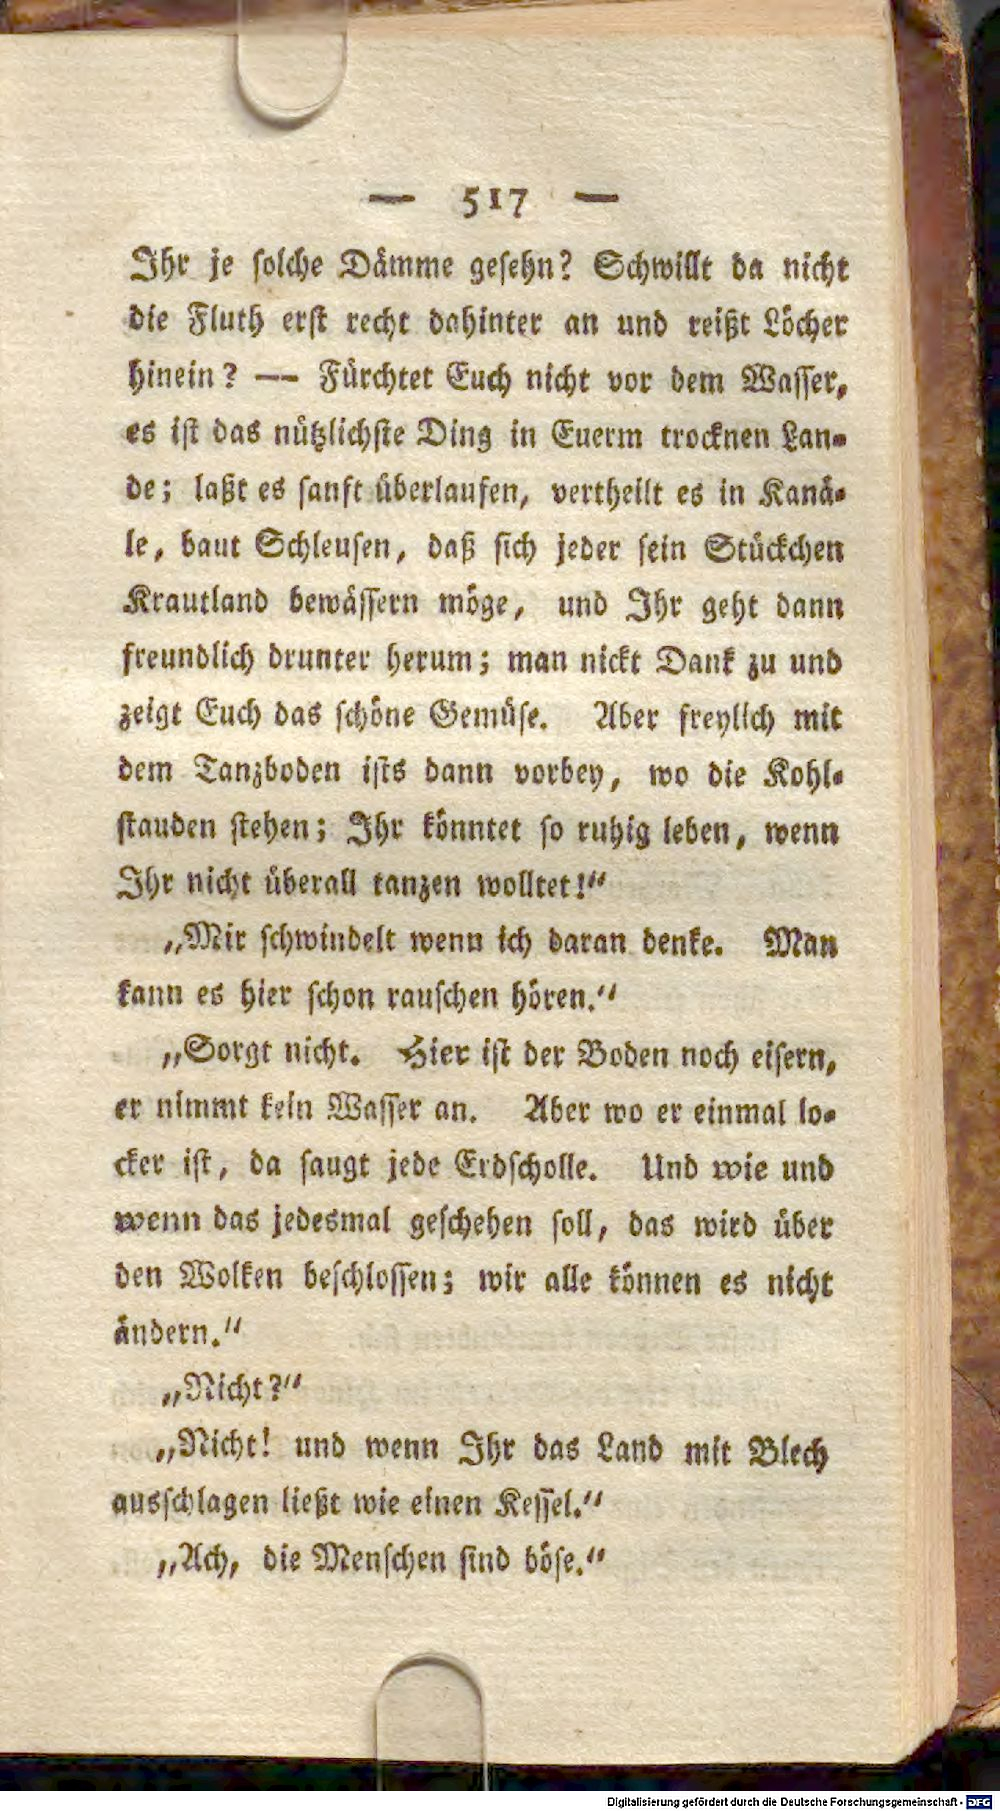 — 517 —
Ihr je solche Dämme gesehn? Schwillt da nicht
die Fluth erst recht dahinter an und reißt Löcher
hinein? — Fürchtet Euch nicht vor dem Wasser,
es ist das nützlichste Ding in Euerm trocknen Lan-
de; laßt es sanft überlaufen, vertheilt es in Kanä-
le, baut Schleusen, daß sich jeder sein Stückchen
Krautland bewässern möge, und Ihr geht dann
freundlich drunter herum; man nickt Dank zu und
zeigt Euch das schöne Gemüse. Aber freylich mit
dem Tanzboden ists dann vorbey, wo die Kohl-
stauden stehen; Ihr könntet so ruhig leben, wenn
Ihr nicht überall tanzen wolltet!“
„Mir schwindelt wenn ich daran denke. Man
kann es hier schon rauschen hören.“
„Sorgt nicht. Hier ist der Boden noch eisern,
er nimmt kein Wasser an. Aber wo er einmal lo-
cker ist, da saugt jede Erdscholle. Und wie und
wenn das jedesmal geschehen soll, das wird über
den Wolken beschlossen; wir alle können es nicht
ändern.“
„Nicht?“
„Nicht! und wenn Ihr das Land mit Blech
ausschlagen ließt wie einen Kessel.“
„Ach, die Menschen sind böse.“
Digitalisierung gefördert durch die Deutsche Forschungsgemeinschaft - DFG